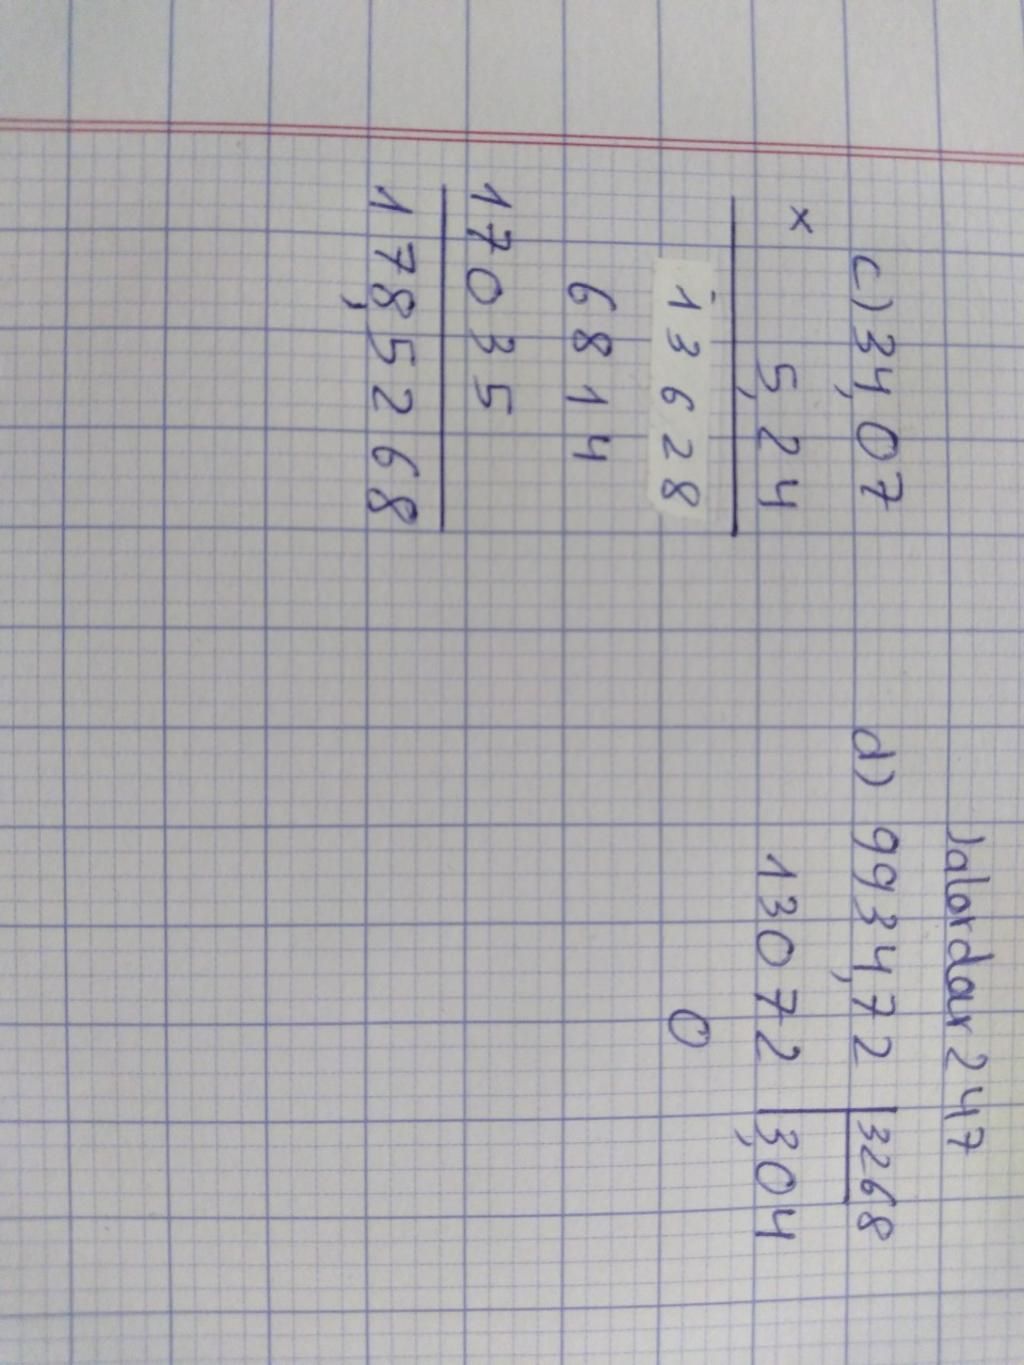 Jalordar247
c) 34,07
x 5,24
13628
6814
17035
178,5268
d) 9934,72 3268
13072 3,04
0